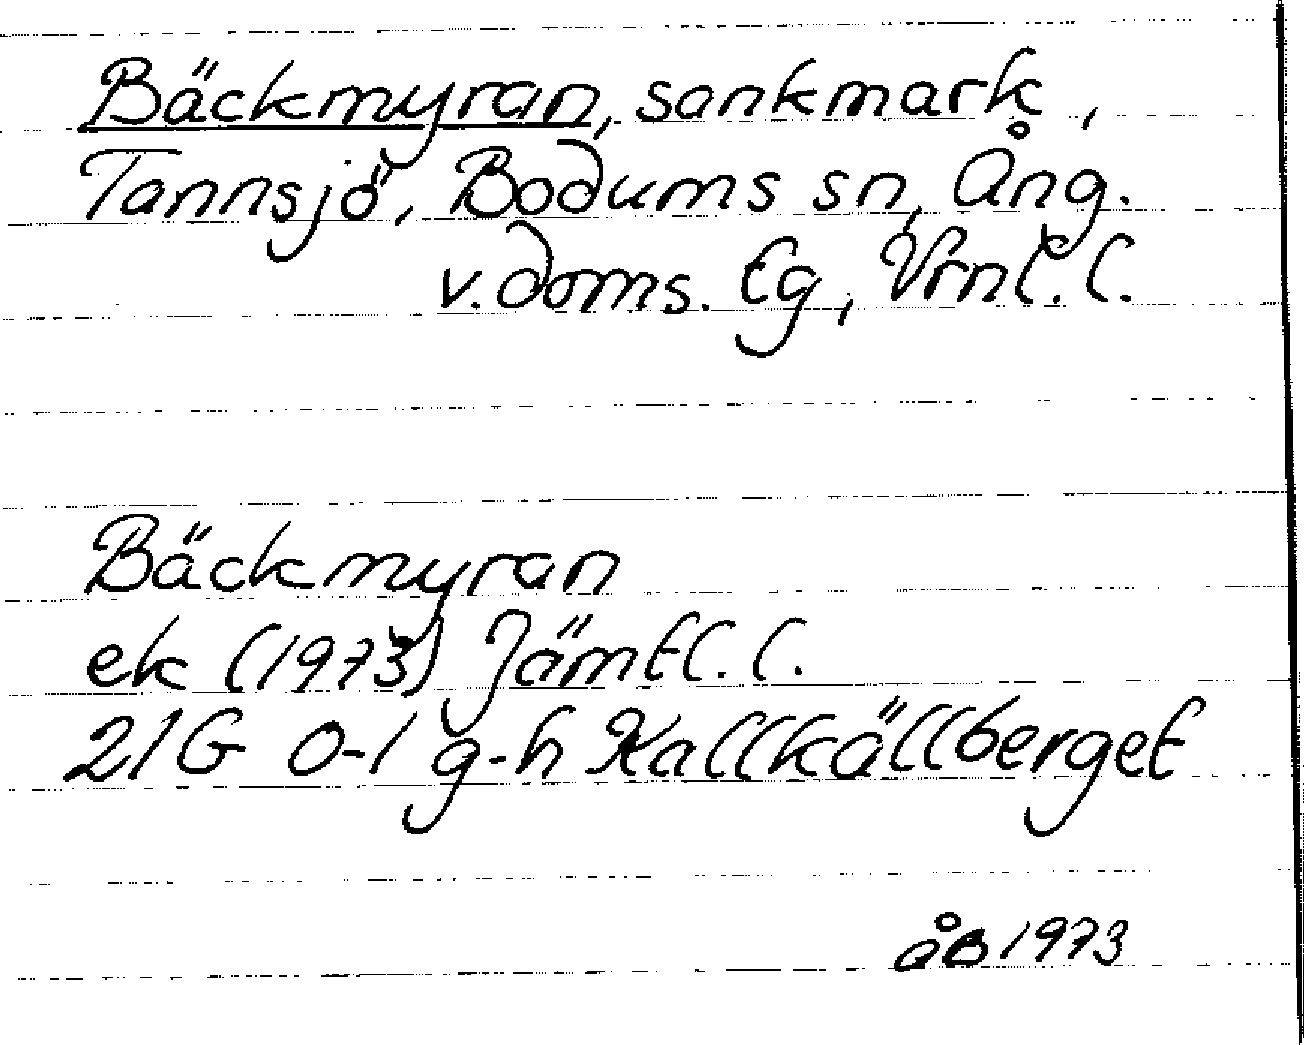 Bäckmyran, sankmark,
Tannsjö, Bodums sn, Ång.
v. doms. tg, Vrnl. l.
Bäckmyran
ek (1973) Jämtl. l.
21G 0-1 g-h Kallkällberget
åB 1973